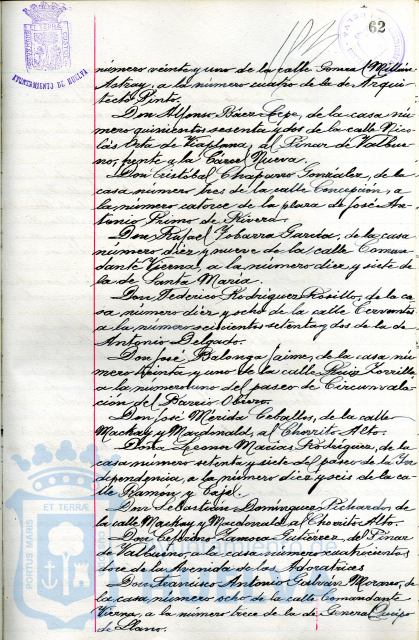 62
AYUNTAMIENTO DE HUELVA
número veinte y uno de la calle General Millán
Astray, a la número cuatro de la de Arqui-
tecto Pinto.
Don Alfonso Báez Lepe, de la casa nú-
mero quinientos sesenta y dos de la calle Nico-
lás Orta de Viaplana, al Pinar de Valbue-
no, frente a la Cárcel Nueva.
Don Cristóbal Chaparro Gonzalez, de la
casa número tres de la calle Concepción, a
la número catorce de la plaza de José An-
tonio Primo de Rivera.
Don Rafael Ybarra García, de la casa
número diez y nueve de la calle Coman-
dante Vierna, a la número diez y siete de
la de Santa María.
Don Federico Rodríguez Rosillo, de la ca-
sa número diez y ocho de la calle Cervantes
a la número seiscientos setenta y dos de la de
Antonio Delgado.
Don José Balonga Jaime, de la casa nú-
mero treinta y uno de la calle Ruiz Zorrilla
a la número uno del paseo de Circunvala-
ción del Barrio Obrero.
Don José Mérida Ceballos, de la calle
Mackay y Macdonald, al Chorrito Alto.
Doña Leonor Macías Rodríguez, de la
casa número setenta y siete del paseo de la In-
dependencia, a la número diez y seis de la ca-
lle Ramón y Cajal.
Don Sebastián Domínguez Pichardo, de
la calle Mackay y Macdonald, al Chorrito Alto.
Don Ceferino Zamora Gutiérrez, del Pinar
de Valbueno, a la casa número cuatrocientos
doce de la Avenida de los Adoratrices
Don Francisco Antonio Galván Moreno, de
la casa número ocho de la calle Comandante
Vierna, a la número trece de la de General Queipo
de Llano.
PORTUS MARIS
ET TERRAE
Ayuntamiento de Huelva